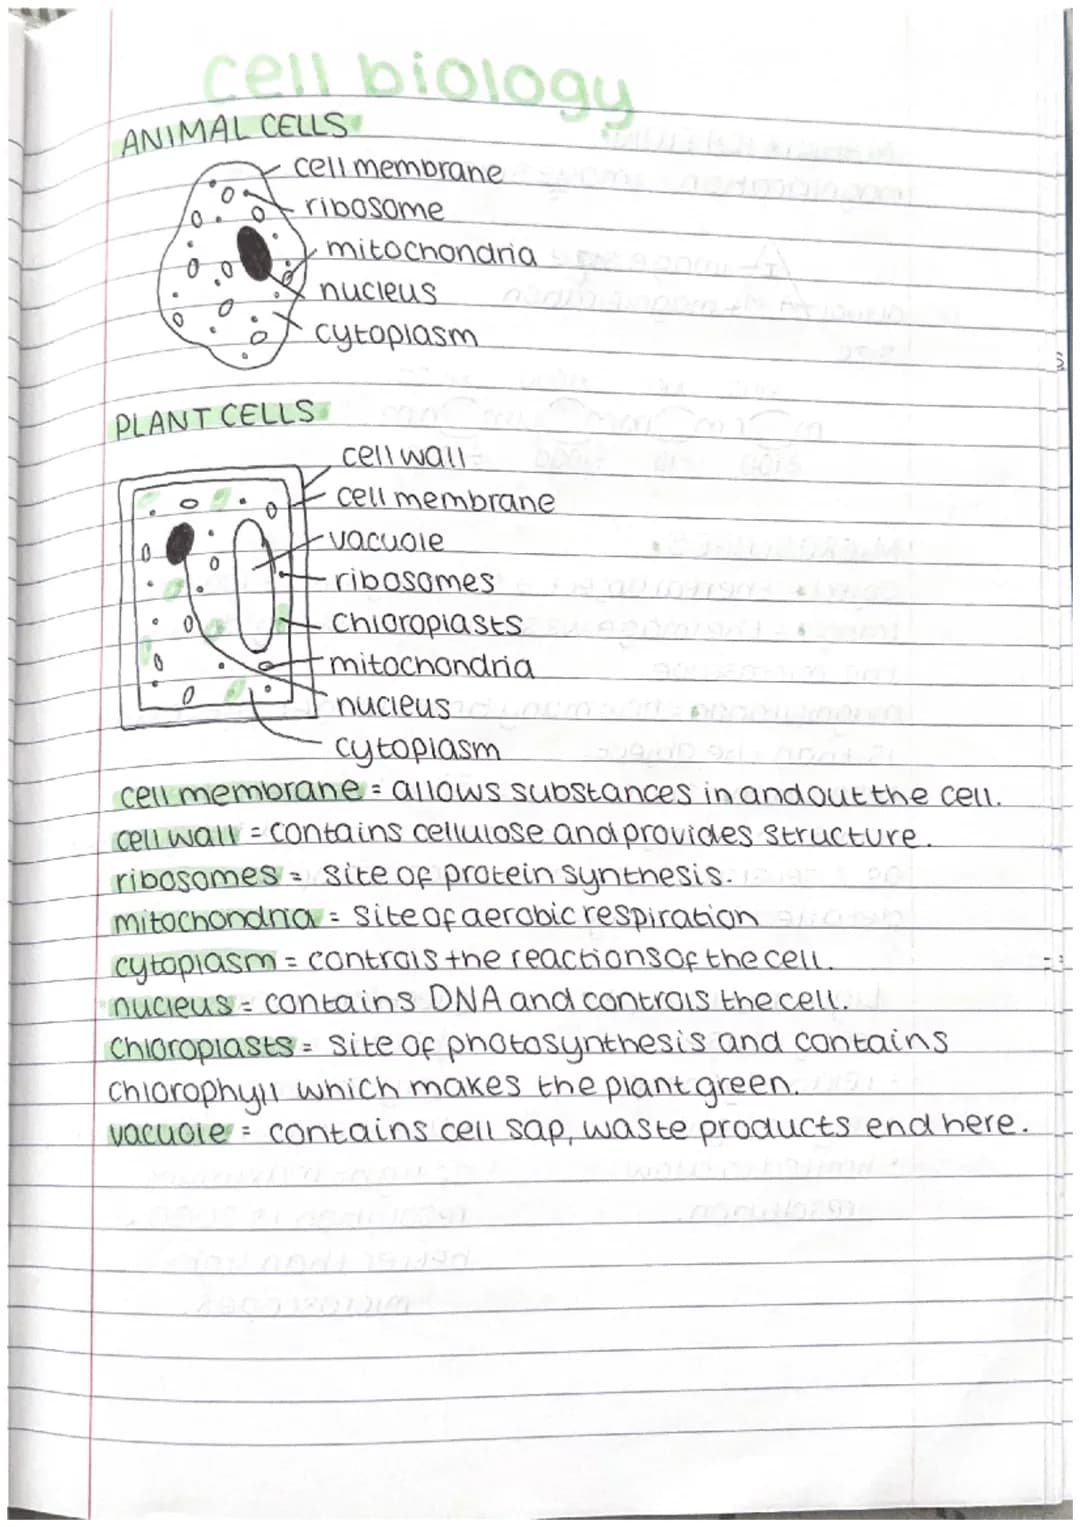 cell biology
ANIMAL CELLS
cell membrane
ribosome
mitochondria
nucleus
cytoplasm
PLANT CELLS
cell wall
cell membrane
vacuole
ribosomes
chloroplasts
mitochondria
nucleus
cytoplasm
cell membrane = allows substances in and out the cell.
cell wall = contains cellulose and provides structure.
ribosomes = site of protein synthesis.
mitochondria = site of aerobic respiration
cytoplasm = controls the reactions of the cell.
nucleus = contains DNA and controls the cell.
chloroplasts = site of photosynthesis and contains
chlorophyll which makes the plant green.
vacuole = contains cell sap, waste products end here.